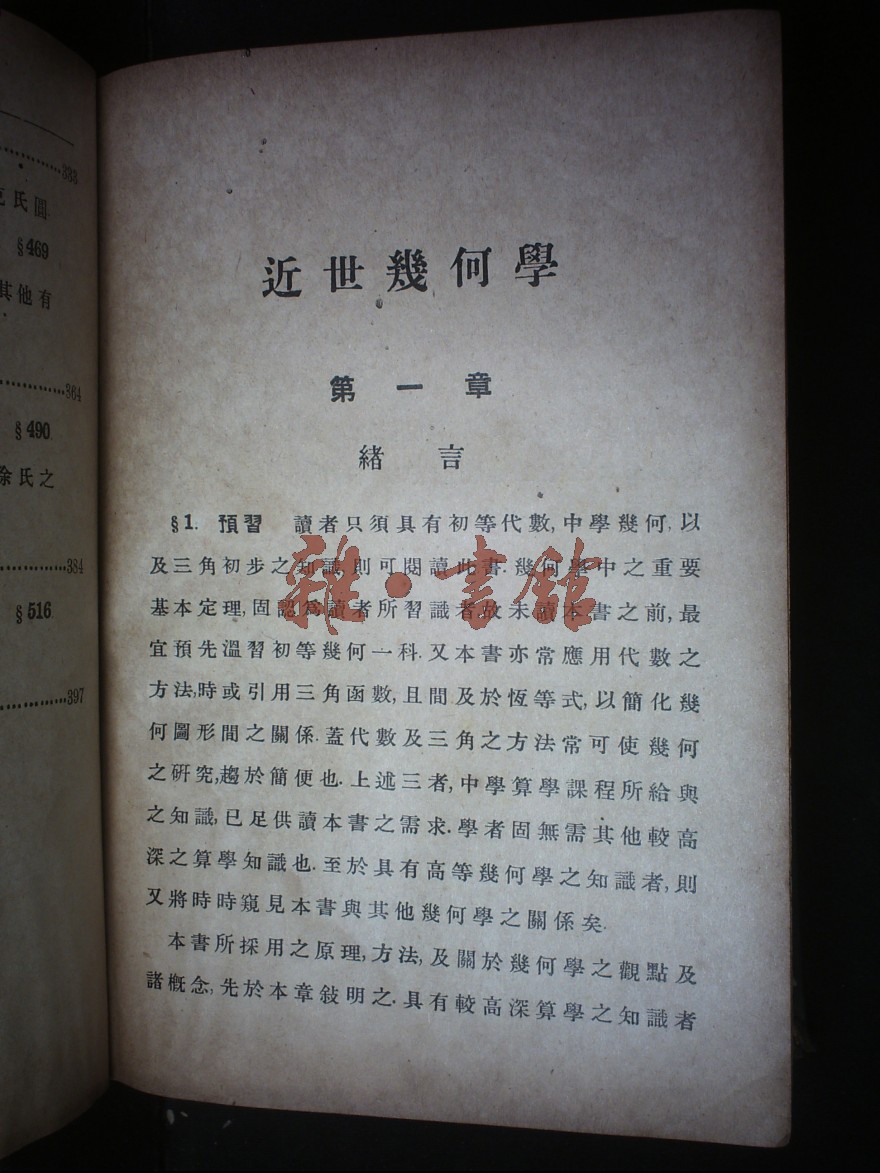 333
氏圓.
§469
其他有
364
§490
氏之
384
§516
397
近世幾何學
第一章
緒言
§1. 預習 讀者只須具有初等代數,中學幾何,以
及三角初步之知識,則可閱讀此書.幾何學中之重要
基本定理,固認爲讀者所習識者故未讀本書之前,最
宜預先溫習初等幾何一科.又本書亦常應用代數之
方法,時或引用三角函數,且間及於恆等式,以簡化幾
何圖形間之關係.蓋代數及三角之方法常可使幾何
之研究,趨於簡便也.上述三者,中學算學課程所給與
之知識,已足供讀本書之需求.學者固無需其他較高
深之算學知識也.至於具有高等幾何學之知識者,則
又將時時窺見本書與其他幾何學之關係矣.
本書所採用之原理,方法,及關於幾何學之觀點及
諸概念,先於本章敍明之.具有較高深算學之知識者
雜·書館